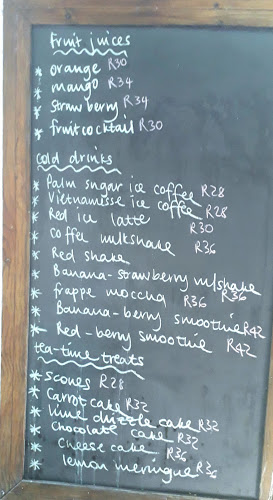 Fruit juices
* orange R30
* mango R34
* strawberry R34
* fruitcocktail R30
cold drinks
* Palm sugar ice coffee R28
* Vietnamisse ice coffee R28
* Red ice latte R30
* coffee milkshake R36
* Red shake
* Banana-strawberry m/shake R36
* frappe moccha R36
* Banana-berry smoothie R42
* Red-berry smoothie R42
tea-time treats
* scones R28
* Carrot cake R32
* lime drizzle cake R32
* Chocolate cake R32
* Cheese cake R36
* lemon meringue R36